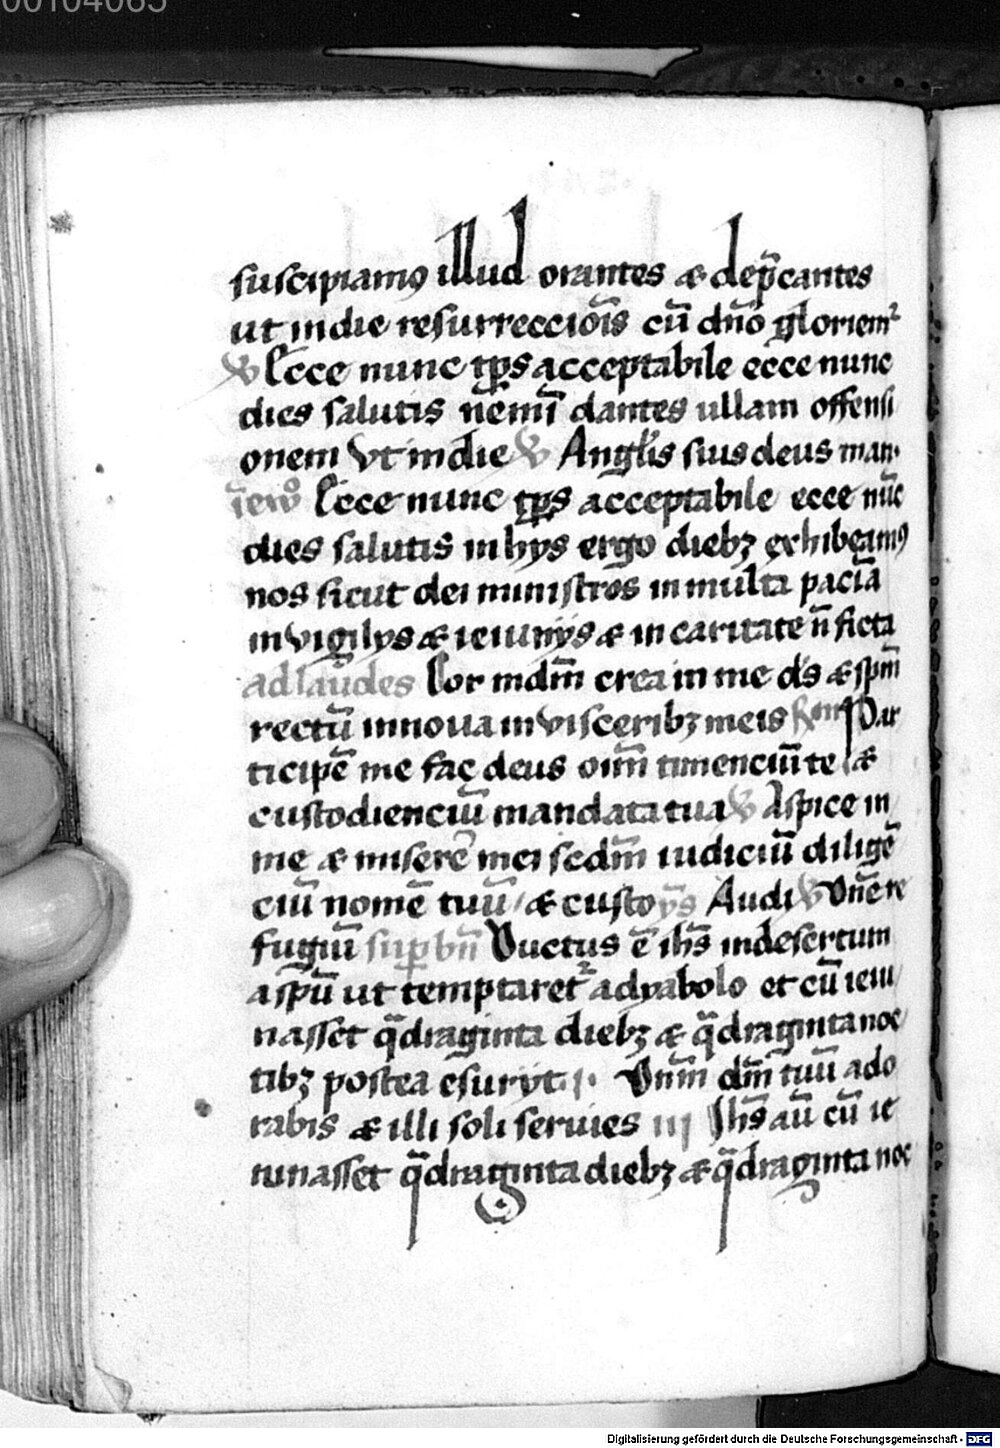 00104065
suscipiamꝰ illud orantes & dep̄cantes
ut in die resurreccio̅is cū dn̅o gloriemᷣ
℣ Ecce nunc tp̅s acceptabile ecce nunc
dies salutis nemi̅ dantes ullam offensi
onem Vt in die ℣ Angl̅is suis deus man
Ecce nunc tp̅s acceptabile ecce nūc
dies salutis in hys ergo diebꝫ exhibeamꝰ
nos sicut dei ministros in multa pacīa
in vigilys & ieiunijs & in caritate n̄ ficta
ad laudes Cor mdm̅ crea in me ds̅ & spm̅
rectū innoua in visceribꝫ meis Par
ticipē me fac deus oīm timenciū te &
custodienciū mandata tua ℣ Aspice in
me & miserē mei scdm̅ iudiciū diligē
ciū nomē tuū & custo Audi ℣ Dn̅e re
fugiū sup bn̅ Ductus ē ihs̅ in desertum
a spū ut temptaretᷣ a dyabolo et cū ieiu
nasset q̄draginta diebꝫ & q̄draginta noc
tibꝫ postea esuryt Dn̅m dm̅ tuū ado
rabis & illi soli seruies iij Ihs̅ au̅ cū ie
iunasset q̄draginta diebꝫ & q̄draginta noc
Digitalisierung gefördert durch die Deutsche Forschungsgemeinschaft - DFG